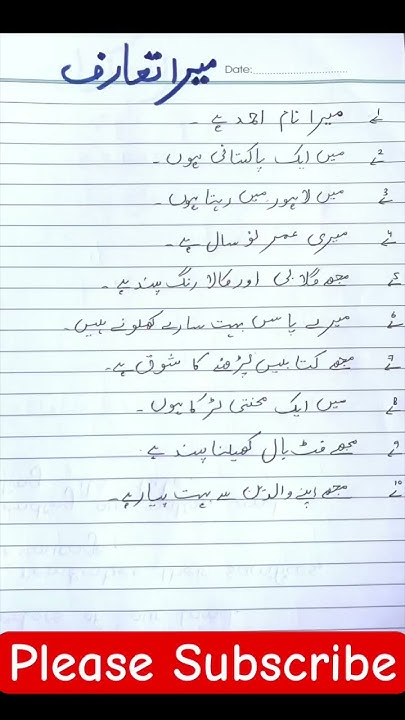 میرا تعارف
Date:
۱ میرا نام احمد ہے ۔
۲ میں ایک پاکستانی ہوں ۔
۳ میں لاہور میں رہتا ہوں۔
۴ میری عمر نو سال ہے ۔
۵ مجھ گلابی اور کالا رنگ پسند ہے ۔
۶ میرے پاس بہت سارے کھلونے ہیں۔
۷ مجھ کتابیں پڑھنے کا شوق ہے۔
۸ میں ایک محنتی لڑکا ہوں ۔
۹ مجھ فٹ بال کھیلنا پسند ہے
۱۰ مجھ اپنے والدین سے بہت پیار ہے۔
Please Subscribe